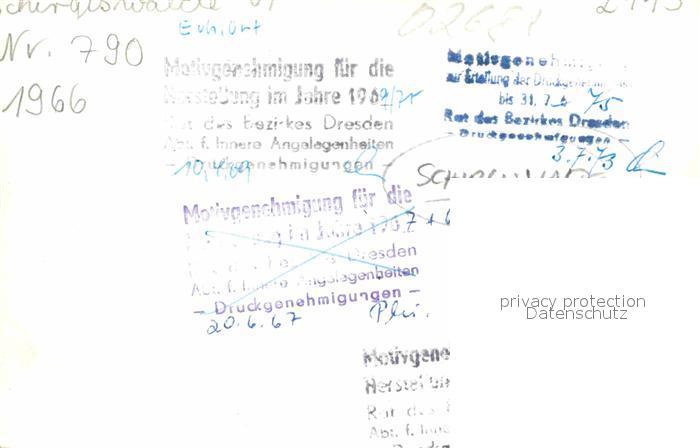 Nr. 790
1966
Motivgenehmigung für die
Herstellung im Jahre 1969/71
Rat des Bezirkes Dresden
Abt. f. Innere Angelegenheiten
– Druckgenehmigungen –
10.4.69
Motivgenehmigung
zur Erteilung der Druckgenehmigung
bis 31.
75
Rat des Bezirkes Dresden
– Druckgenehmigungen –
3.7.73
Motivgenehmigung für die
im Jahre 1967 +
Dresden
Abt. f. Innere Angelegenheiten
– Druckgenehmigungen –
20.6.67
privacy protection
Datenschutz
Motivgene
Herstellun
Rat des
Abt. f. Inne